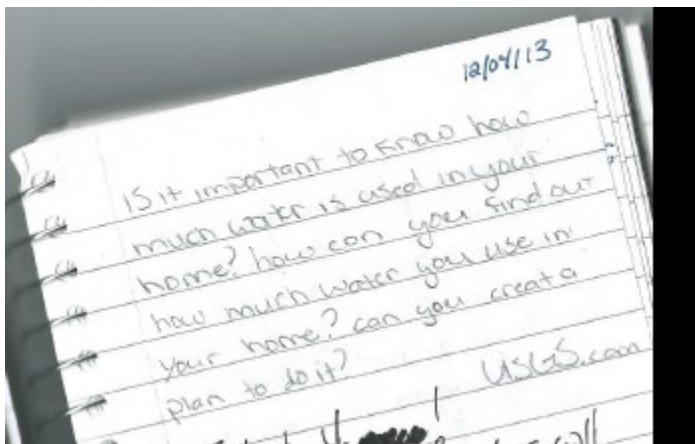 12/04/13
Is it important to know how
much water is used in your
home? how can you find out
how much water you use in
your home? can you creat a
plan to do it?
USGS.com